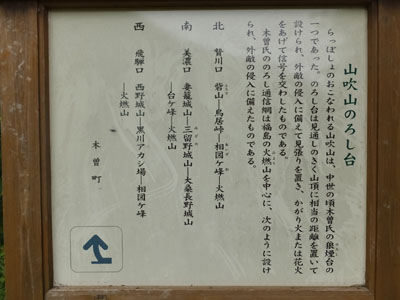 山吹山のろし台
らっぽしょのおこなわれる山吹山は、中世の頃木曽氏の狼煙台の
一つであった。のろし台は見通しのきく山頂に相当の距離を置いて
設けられ、外敵の侵入に備えて見張りを置き、かがり火または花火
をあげて信号を交わしたものである。
木曽氏ののろし通信網は福島の火燃山を中心に、次のように設け
られ、外敵の侵入に備えたものである。
北 贄川口 砦山―鳥居峠―相図ケ峰―火燃山
南 美濃口 妻籠城山―三留野城山―大桑長野城山
―台ケ峰―火燃山
西 飛騨口 西野城山―黒川アカシ場―相図ケ峰
―火燃山
木曽町